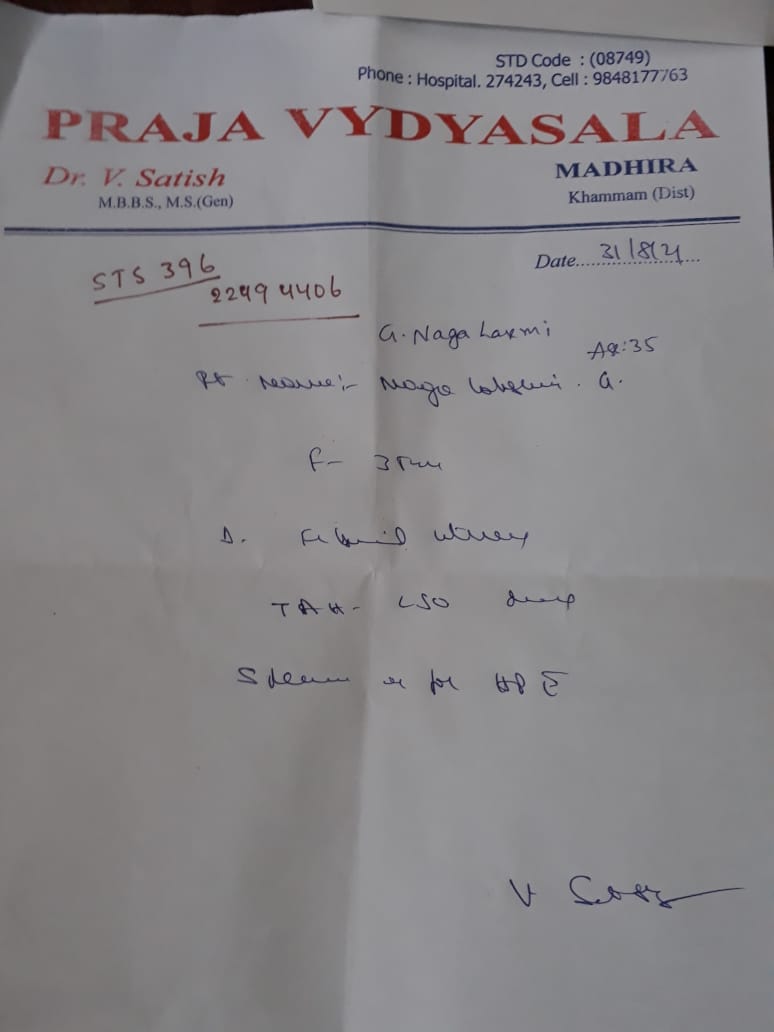 STD Code : (08749)
Phone : Hospital. 274243, Cell : 9848177763
PRAJA VYDYASALA
Dr. V. Satish
M.B.B.S., M.S.(Gen)
MADHIRA
Khammam (Dist)
Date 31/8/21
STS 396
22494406
G. Naga Laxmi
Ag: 35
Pt Name:- Naga Lakshmi. G.
F- 35
D. Fibroid uterus
TAH- LSO done
for HPE
V